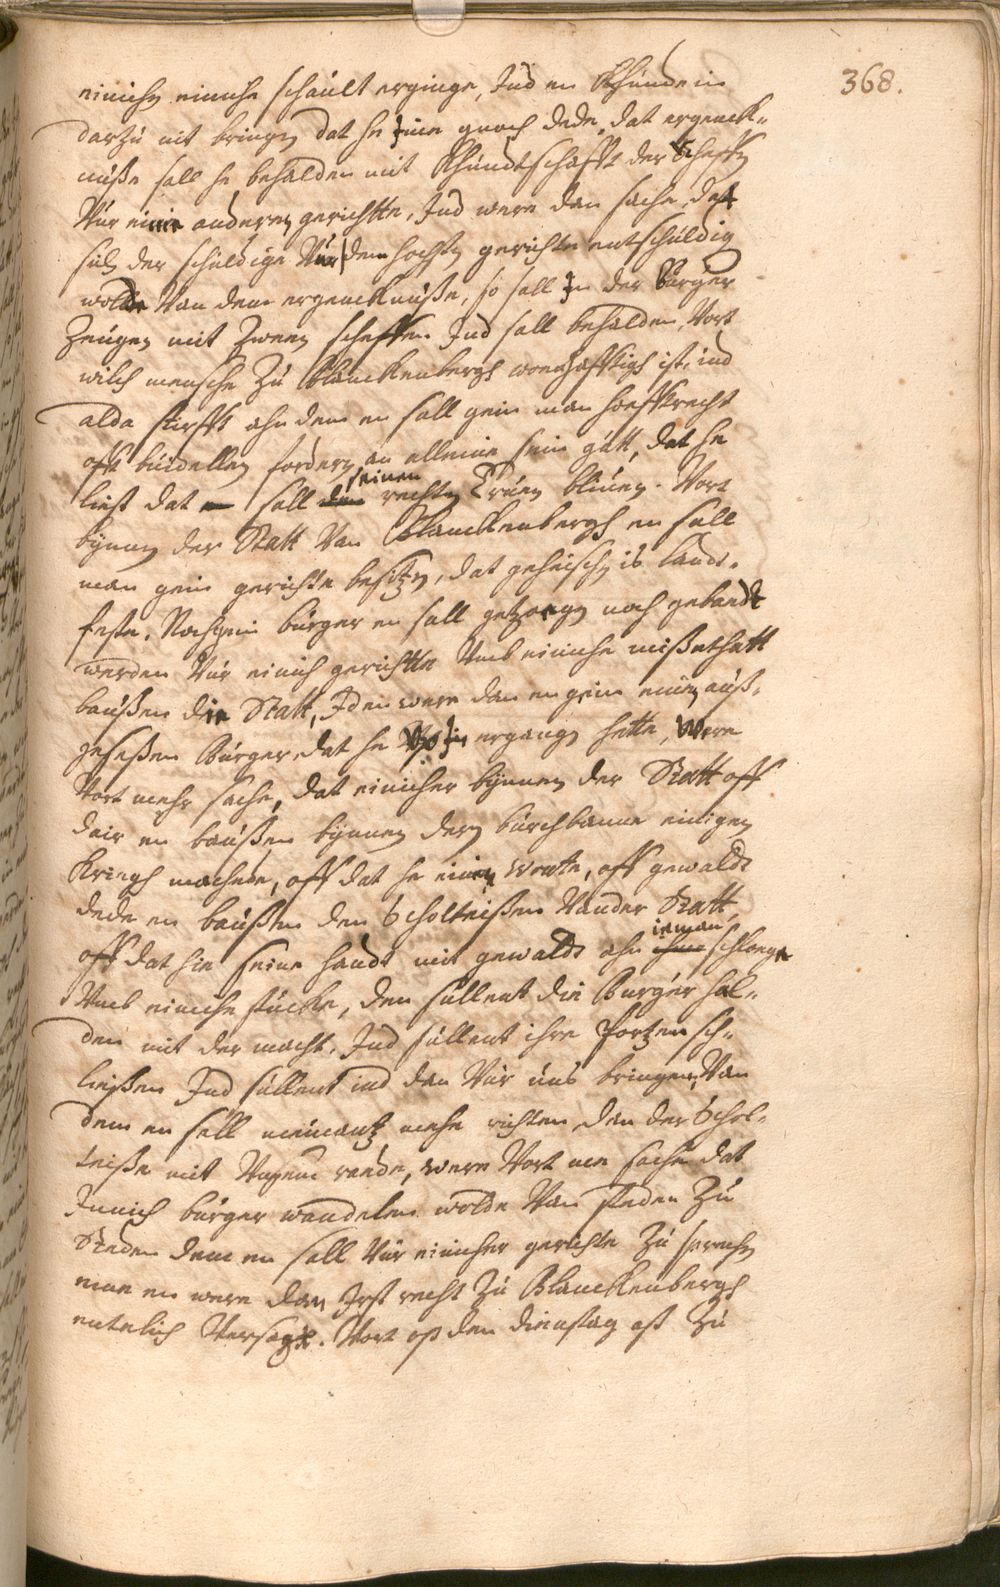 368.
einichen einiche schault erginge, Ind en Khünde in
darzu nit bringen dat he ime gnoch dede, dat ergenck-
nuße sall he behalden mit Khündtschafft der Scheffen
Vür einie anderen gerichtte, Ind were dan sache, dat
sich der schüldige Vür dem hochsten gerichte entschüldigen
wolde Van dem ergencknuße, so sall in der Bürger
Zeugen mit Zween scheffen Ind sall behalden, Vort
wilch mensche Zu Blanckenbergh woenhafftigh ist, ind
alda stirfft ahn dem en sall gein man hoeffrecht
offt büidellen fordern, an alleine sein gütt, dat he
liest dat sall seinen rechten Erven bliven. Vort
bynnen der Statt Van Blanckenbergh en sall
man gein gerichte besitzen, dat geheischen is Landt-
feste. Noch gein bürger en sall getzoegen noch gebandt
werden Vür einich gerichtte Vmb einiche mißethatt
baußen die Statt, Iden were dan en gein einen auß-
geseßen Bürger, dat he Vß in ergangen hette, Were
Vort mehr sache, dat einicher bynnen der Statt off
dair en baußen bynnen dem bürchbanne einigen
Kriegh machede, off dat he einen wonte, off gewaldt
dede en baußen den Scholteißen Vander Statt,
off dat hie seine handt mit gewaldt ahn ieman schloege
Vmb einiche stücke, den süllent die Bürger hal-
den mit der macht. Ind süllent ihre Portzen sch-
ließen Ind süllent ind dan Vür uns bringen, Van
dem en sall niemantz mehe richten, dan der Schol-
teiße mit Vnsem raede, were Vort me sache dat
Innich bürger wandelen wolde Van steden Zu
Steden dem en sall Vür einicher gerichte Zu sprechen
eme en were dan Irst recht Zu Blanckenbergh
entelich Versagt. Vort op den dienstag ast Zu